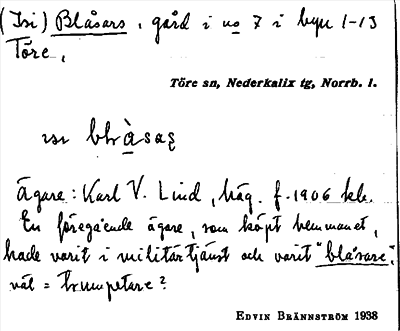 (Isi) Blåsars, gård i no 7 i byn 1-13
Töre,
Töre sn, Nederkalix tg, Norrb. l.
ısı blàsaş
Ägare: Karl V. Lind, häg. f. 1906 kb.
En föregående ägare, som köpt hemmanet,
hade varit i militärtjänst och varit "blåsare",
väl = trumpetare?
EDVIN BRÄNNSTRÖM 1938